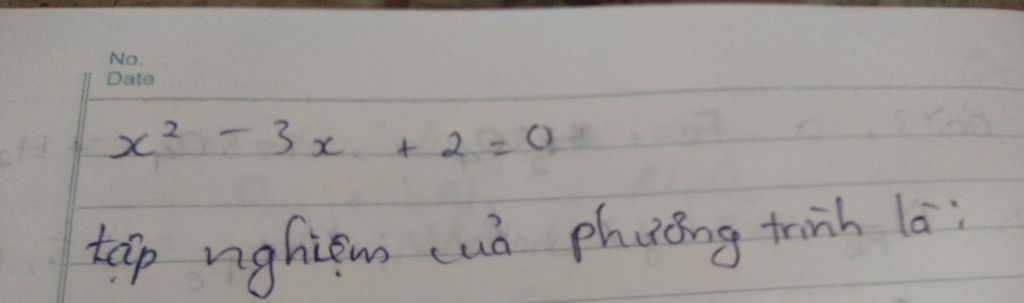 No.
Date
x² - 3x + 2 = 0
tập nghiệm củả phương trình là: